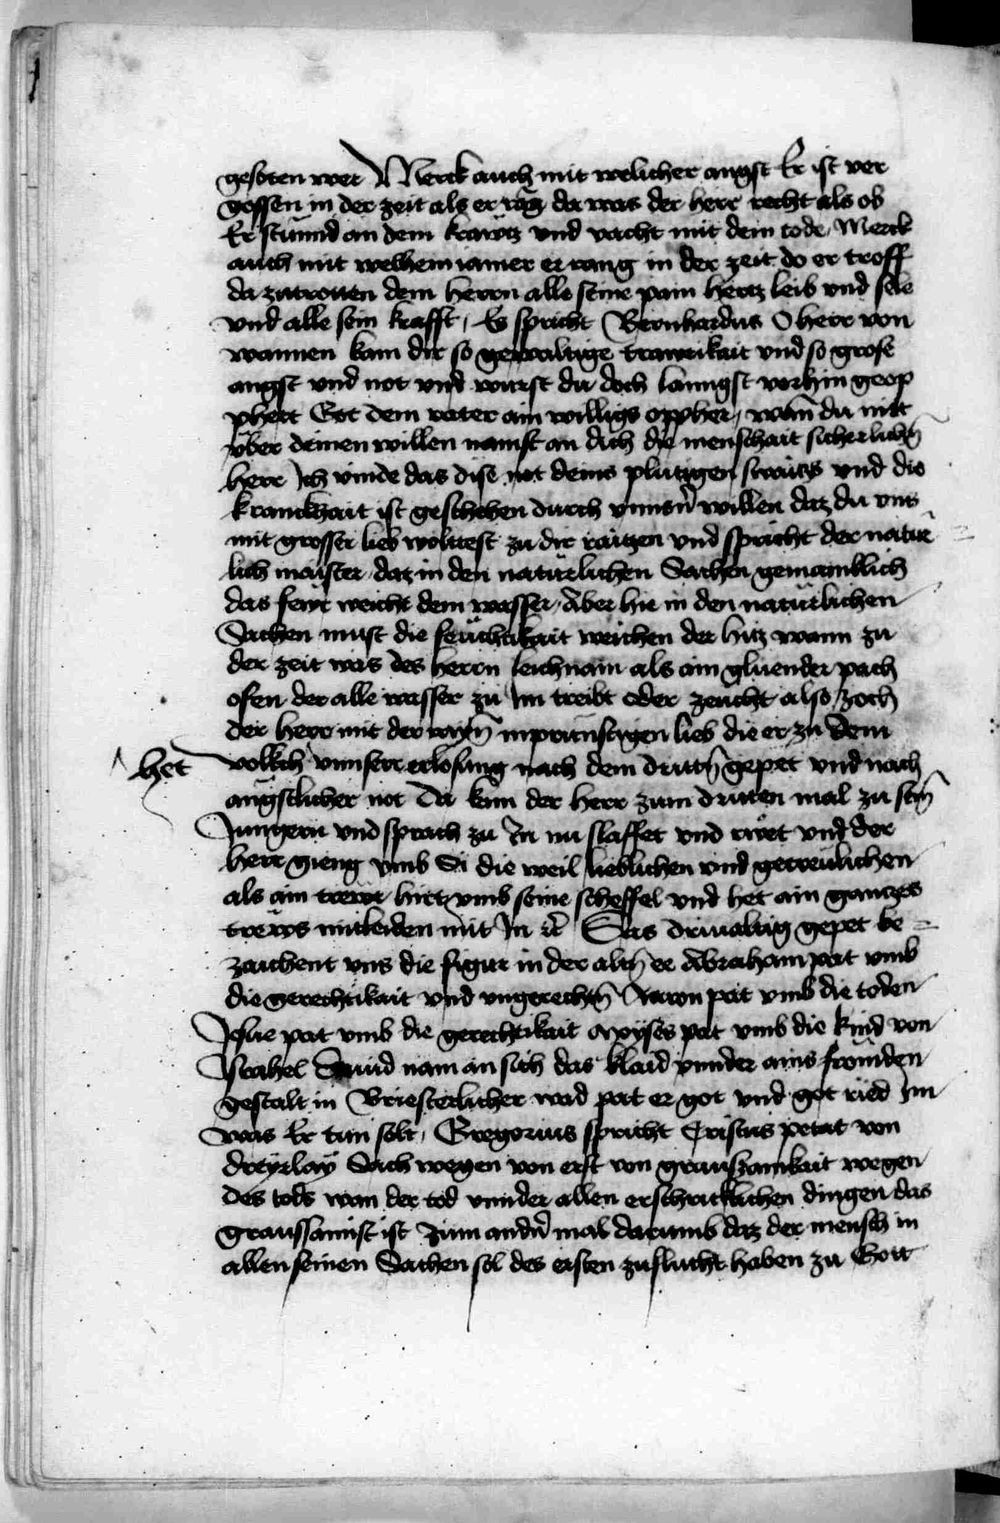 gesoten wer Merck auch mit welicher angst Er ist ver
gossen in der zeit als er rāg da was der herr recht als ob
Er stuend an dem krawtz vnd vacht mit dem tode Merck
auch mit welhem iamer er rang in der zeit do er troff
da zutrouen dem herrn alle seine pain hertz leib vnd sele
vnd alle sein krafft / Es spricht Bernhardus O herr von
wannen kam dir so gewaltige trawrikait vnd so grose
angst vnd not vnd wurst du doch lanngst vorhin geop
phert Got dem vater ain willigs oppher / wañ du nitt
vber deinen willen namst an dich die menschait sicherlichñ
herr Ich vinde das dise not deins plutigen swaitzs vnd die
kranckhait ist geschehen durch vnnsñ willen daz du vns
mit grosser lieb woltest zu dir raitzen vnd spricht der natur
lich maister daz in den naturlichen Sachen gemainklich
das fewr weicht dem wasser / Aber hie in den naturlichen
Sachen must die feuchtikait weichen der hitz wann zu
der zeit was des herrn leichnam als ain gluender pach
ofen der alle wasser zu Im treibt oder zeucht also zoch
der herr mit der inprunstigen lieb die er zu dem
het volkch vnnserr erlosung nach dem dritñ gepet vnd nach
angstlicher not Da kam der herr zum dritten mal zu seiñ
Jungern vnd sprach zu In nu slaffet vnd rwet vnd der
herr gieng vmb Si die weil lieblichen vnd getreulichen
als ain trewr hirt vmb seine scheffel vnd het ain gantzes
trews mitleiden mit In ꝛc Das driualtig gepet be
zaichent vns die figur in der altñ ee Abraham pat vmb
die gerechtikait vnd vngerechtñ Aaron pat vmb die toden
Josue pat vmb die gerechtikait Moyses pat vmb die kind von
Israhel Dauid nam an sich das klaid vnnder ains fromden
gestalt in Briesterlicher wad pat er got vnd got ried Im
was Er tun solt / Gregorius spricht Cristus petat von
dreyrlay Sach wegen von erst von grausamkait wegen
des tods wan der tod vnnder allen erschrikklichen dingen das
graussamist ist Zum andñ mal darumb daz der mensch in
allen seinen Sachen sol des ersten zuflucht haben zu Gott